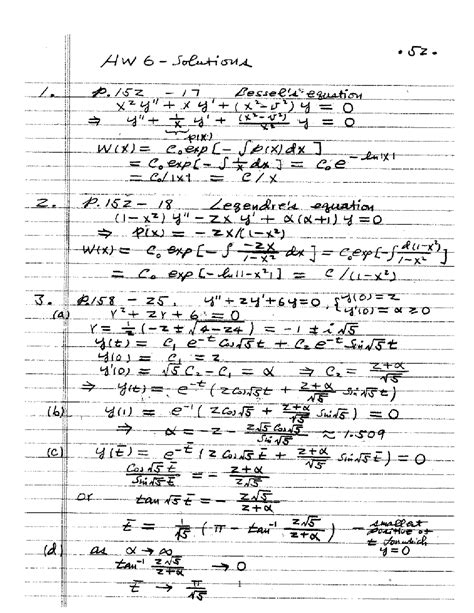 . 52 .
HW 6 - Solutions
1. P. 152 - 17 Bessel's equation
x² y'' + x y' + (x² - ν²) y = 0
⇒ y'' + 1/x y' + (x² - ν²)/x² y = 0
p(x)
W(x) = C₀ exp[ - ∫ p(x) dx ]
= C₀ exp[ - ∫ 1/x dx ] = C₀ e^(-ln|x|)
= C₀/|x| = C/x
2. P. 152 - 18 Legendre's equation
(1-x²) y'' - 2x y' + α(α+1) y = 0
⇒ p(x) = - 2x/(1-x²)
W(x) = C₀ exp[ - ∫ -2x/(1-x²) dx ] = C₀ exp[ - ∫ d(1-x²)/(1-x²) ]
= C₀ exp[ - ln|1-x²| ] = C/(1-x²)
3. P. 158 - 25. y'' + 2y' + 6y = 0, { y(0) = 2
(a) r² + 2r + 6 = 0 y'(0) = α ≥ 0
r = 1/2 (-2 ± √(4-24)) = -1 ± i√5
y(t) = C₁ e^(-t) Cos√5 t + C₂ e^(-t) Sin√5 t
y(0) = C₁ = 2
y'(0) = √5 C₂ - C₁ = α ⇒ C₂ = (2+α)/√5
⇒ y(t) = e^(-t) ( 2 Cos√5 t + (2+α)/√5 Sin√5 t )
(b) y(1) = e^(-1) ( 2 Cos√5 + (2+α)/√5 Sin√5 ) = 0
⇒ α = -2 - 2√5 Cos√5 / Sin√5 ≈ 1.509
(c) y(t̄) = e^(-t̄) ( 2 Cos√5 t̄ + (2+α)/√5 Sin√5 t̄ ) = 0
Cos√5 t̄ / Sin√5 t̄ = - (2+α)/(2√5)
or tan √5 t̄ = - 2√5/(2+α)
t̄ = 1/√5 ( π - tan⁻¹ 2√5/(2+α) ) - smallest
positive of
t for which
y = 0
(d) as α → ∞
tan⁻¹ 2√5/(2+α) → 0
t̄ → π/√5